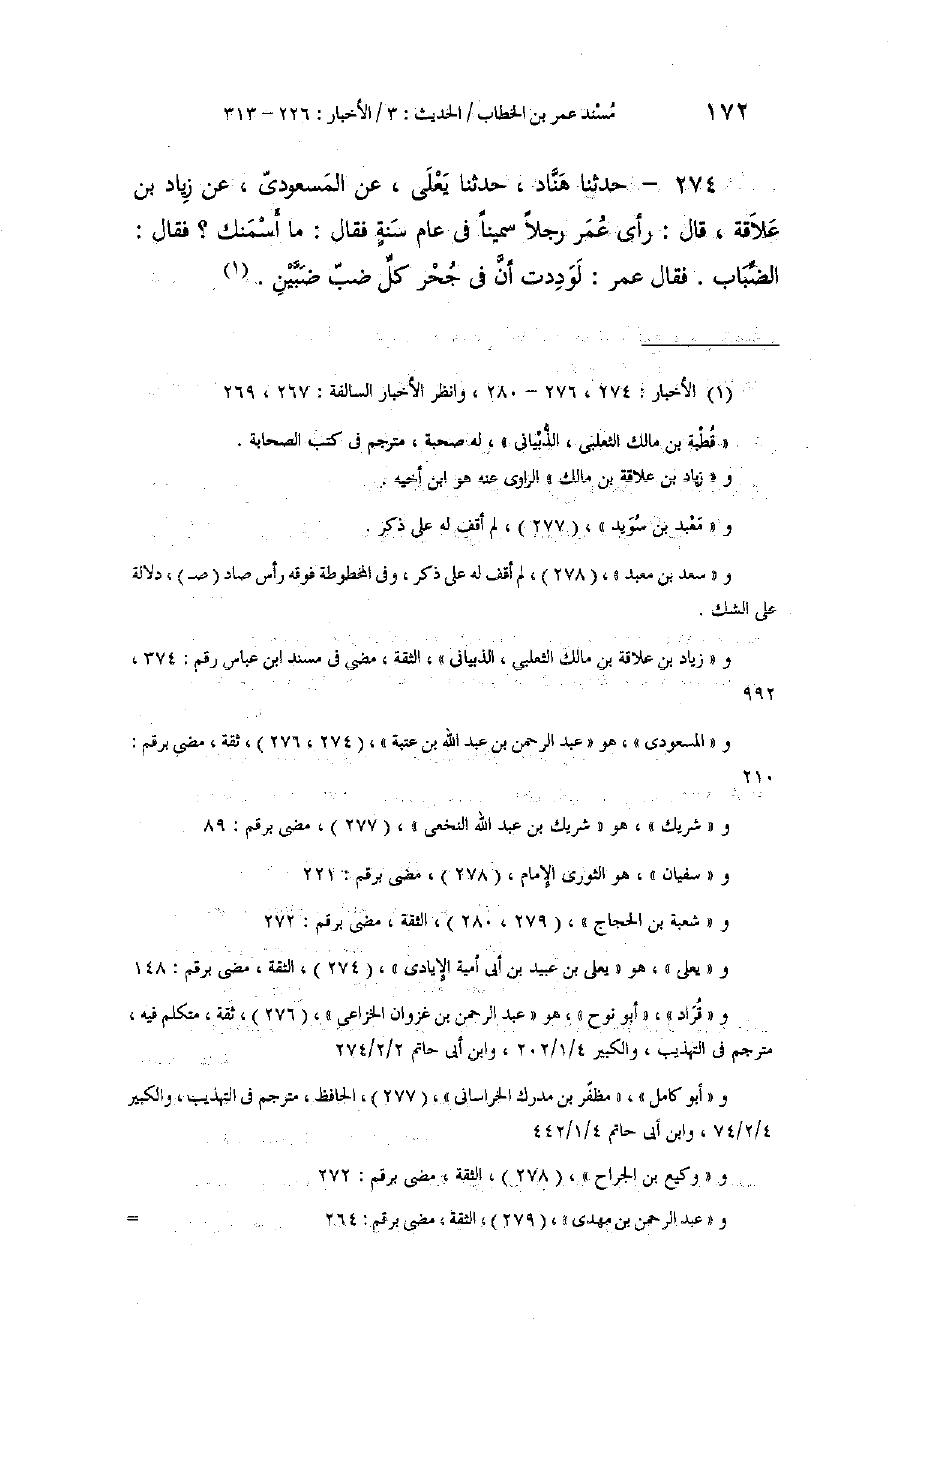 ١٧٢ مُسْند عمر بن الخطاب / الحديث : ٣ / الأخبار : ٢٢٦ – ٣١٣
٢٧٤ – حدثنا هَنَّاد ، حدثنا يَعْلَى ، عن المَسعودىّ ، عن زِياد بن
عَلَاقة ، قال : رأى عُمَر رجلاً سميناً فى عام سَنَةٍ فقال : ما أَسْمَنك ؟ فقال :
الضَّبَاب . فقال عمر : لَوَدِدت أنَّ فى جُحْر كلِّ ضبّ ضَبَّيْنِ . (١)
(١) الأخبار : ٢٧٤ ، ٢٧٦ – ٢٨٠ ، وانظر الأخبار السالفة : ٢٦٧ ، ٢٦٩
« قُطْبَة بن مالك الثعلبى ، الذُّبْيانى » ، له صحبة ، مترجم فى كتب الصحابة .
و « زياد بن علاقة بن مالك » الراوى عنه هو ابن أخيه .
و « مَعْبد بن سُوَيد » ، ( ٢٧٧ ) ، لم أقف له على ذكر .
و « سعد بن معبد » ، ( ٢٧٨ ) ، لم أقف له على ذكر ، وفى المخطوطة فوقه رأس صاد ( صـ ) ، دلالة
على الشك .
و « زياد بن علاقة بن مالك الثعلبى ، الذبيانى » ، الثقة ، مضى فى مسند ابن عباس رقم : ٣٧٤ ،
٩٩٢
و « المسعودى » ، هو « عبد الرحمن بن عبد الله بن عتبة » ، ( ٢٧٤ ، ٢٧٦ ) ، ثقة ، مضى برقم :
٢١٠
و « شريك » ، هو « شريك بن عبد الله النخعى » ، ( ٢٧٧ ) ، مضى برقم : ٨٩
و « سفيان » ، هو الثورى الإمام ، ( ٢٧٨ ) ، مضى برقم : ٢٢١
و « شعبة بن الحجاج » ، ( ٢٧٩ ، ٢٨٠ ) ، الثقة ، مضى برقم : ٢٧٢
و « يعلى » ، هو « يعلى بن عبيد بن أبى أمية الإيادى » ، ( ٢٧٤ ) ، الثقة ، مضى برقم : ١٤٨
و « قُرَاد » ، « أبو نوح » ، هو « عبد الرحمن بن غزوان الخزاعى » ، ( ٢٧٦ ) ، ثقة ، متكلم فيه ،
مترجم فى التهذيب ، والكبير ٢٠٢/١/٤ ، وابن أبى حاتم ٢٧٤/٢/٢
و « أبو كامل » ، « مظفّر بن مدرك الخراسانى » ، ( ٢٧٧ ) ، الحافظ ، مترجم فى التهذيب ، والكبير
٧٤/٢/٤ ، وابن أبى حاتم ٤٤٢/١/٤
و « وكيع بن الجراح » ، ( ٢٧٨ ) ، الثقة ، مضى برقم : ٢٧٢
و « عبد الرحمن بن مهدى » ، ( ٢٧٩ ) ، الثقة ، مضى برقم : ٢٦٤ =